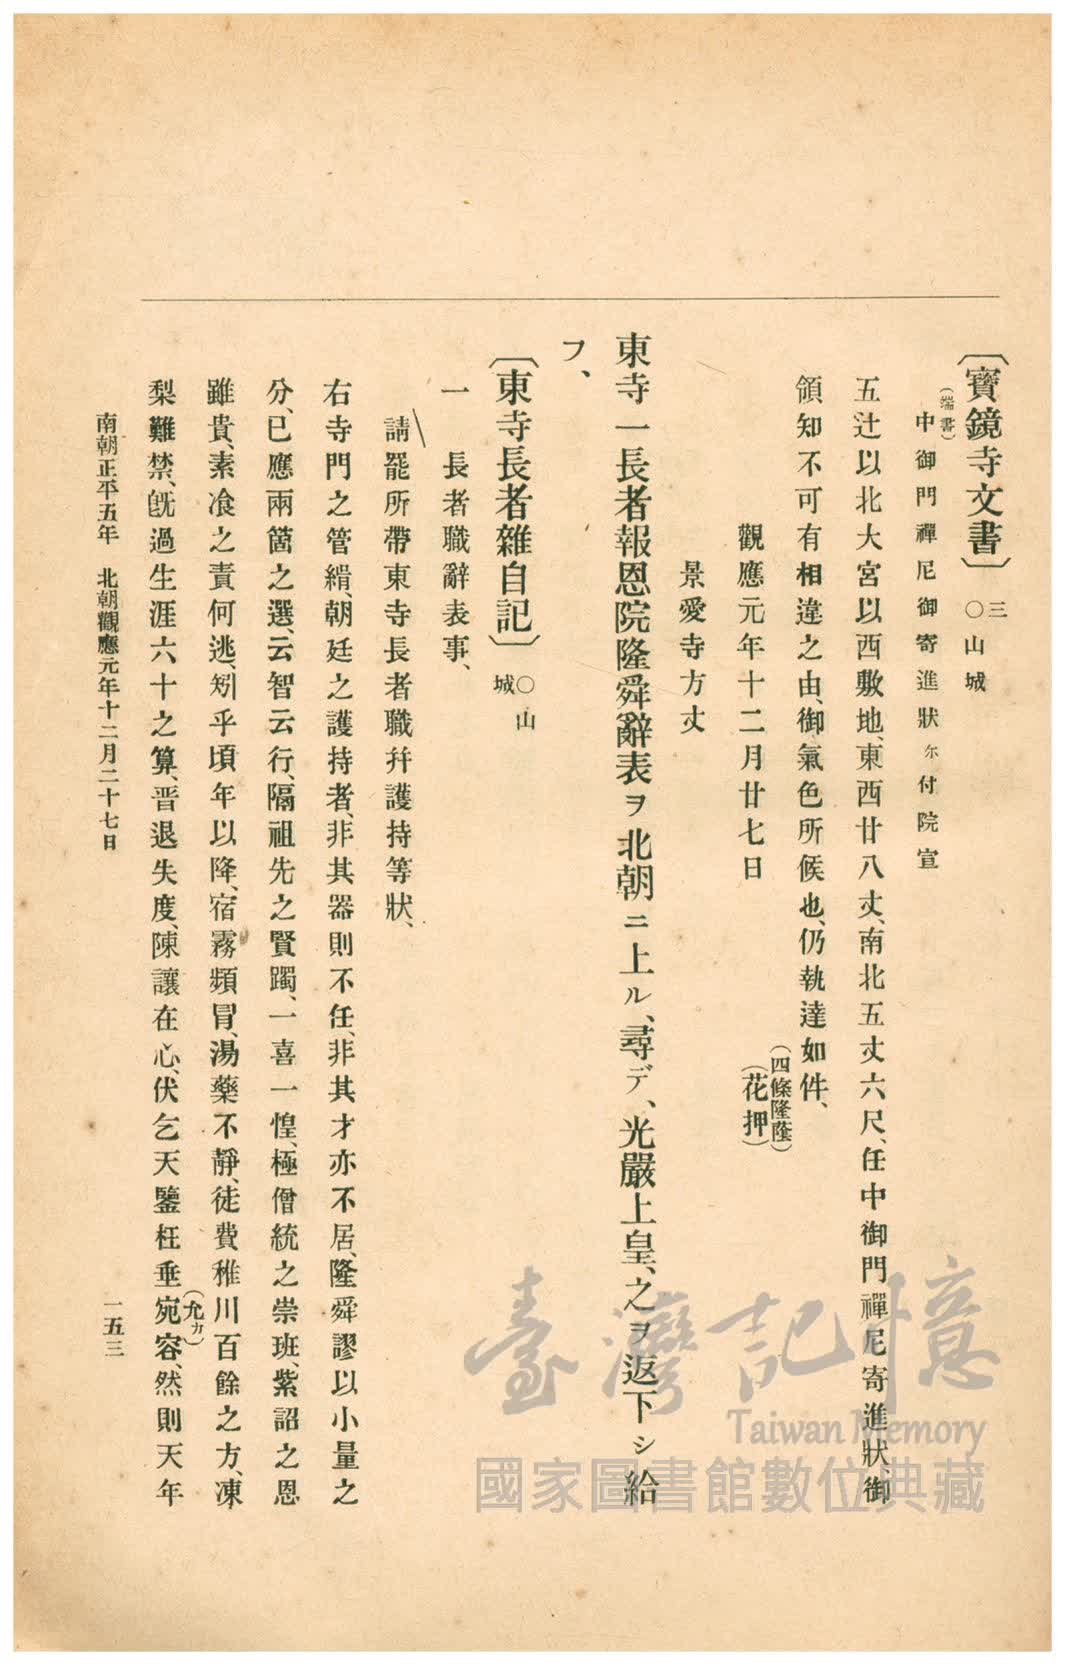 〔寶鏡寺文書〕三〇山城
(端書)
中御門禪尼御寄進狀尓付院宣
五辻以北大宮以西敷地、東西廿八丈、南北五丈六尺、任中御門禪尼寄進狀、御
領知不可有相違之由、御氣色所候也、仍執達如件、
觀應元年十二月廿七日
(四條隆蔭)
(花押)
景愛寺方丈
東寺一長者報恩院隆舜辭表ヲ北朝ニ上ル、尋デ、光嚴上皇、之ヲ返下シ給
フ、
〔東寺長者雜自記〕〇山城
一長者職辭表事、
請罷所帶東寺長者職幷護持等狀、
右寺門之管綃、朝廷之護持者、非其器則不任、非其才亦不居、隆舜謬以小量之
分、已應兩箇之選、云智云行、隔祖先之賢躅、一喜一惶、極僧統之崇班、紫詔之恩
雖貴、素飡之責何逃、矧乎頃年以降、宿霧頻冒、湯藥不靜、徒費稚川百餘之方、凍
梨難禁、旣過生涯六十之算、晋退失度、陳讓在心、伏乞天鑒枉垂宛容、然則天年
(允カ)
南朝正平五年 北朝觀應元年十二月二十七日
一五三
臺灣記憶
Taiwan Memory
國家圖書館數位典藏